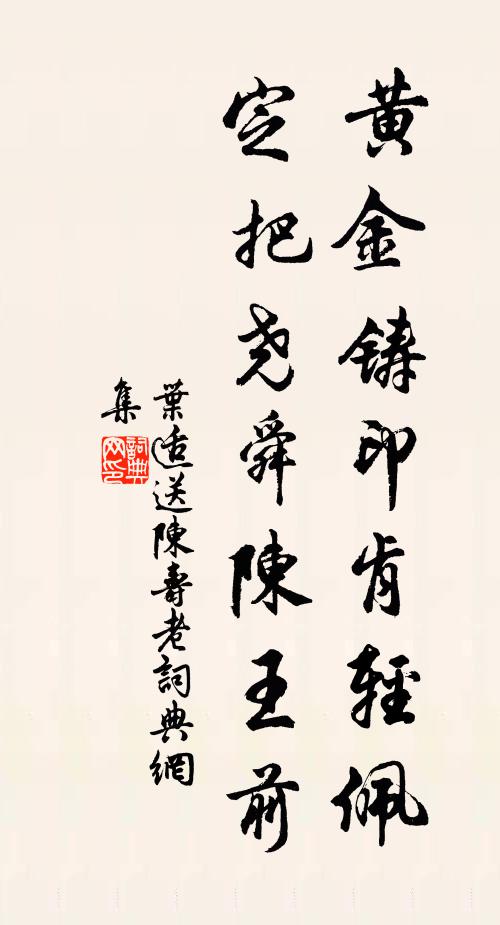 黃金鑄印肯輕佩
定把堯舜陳王前
葉適送陳壽老詞典網
集
詞典網印